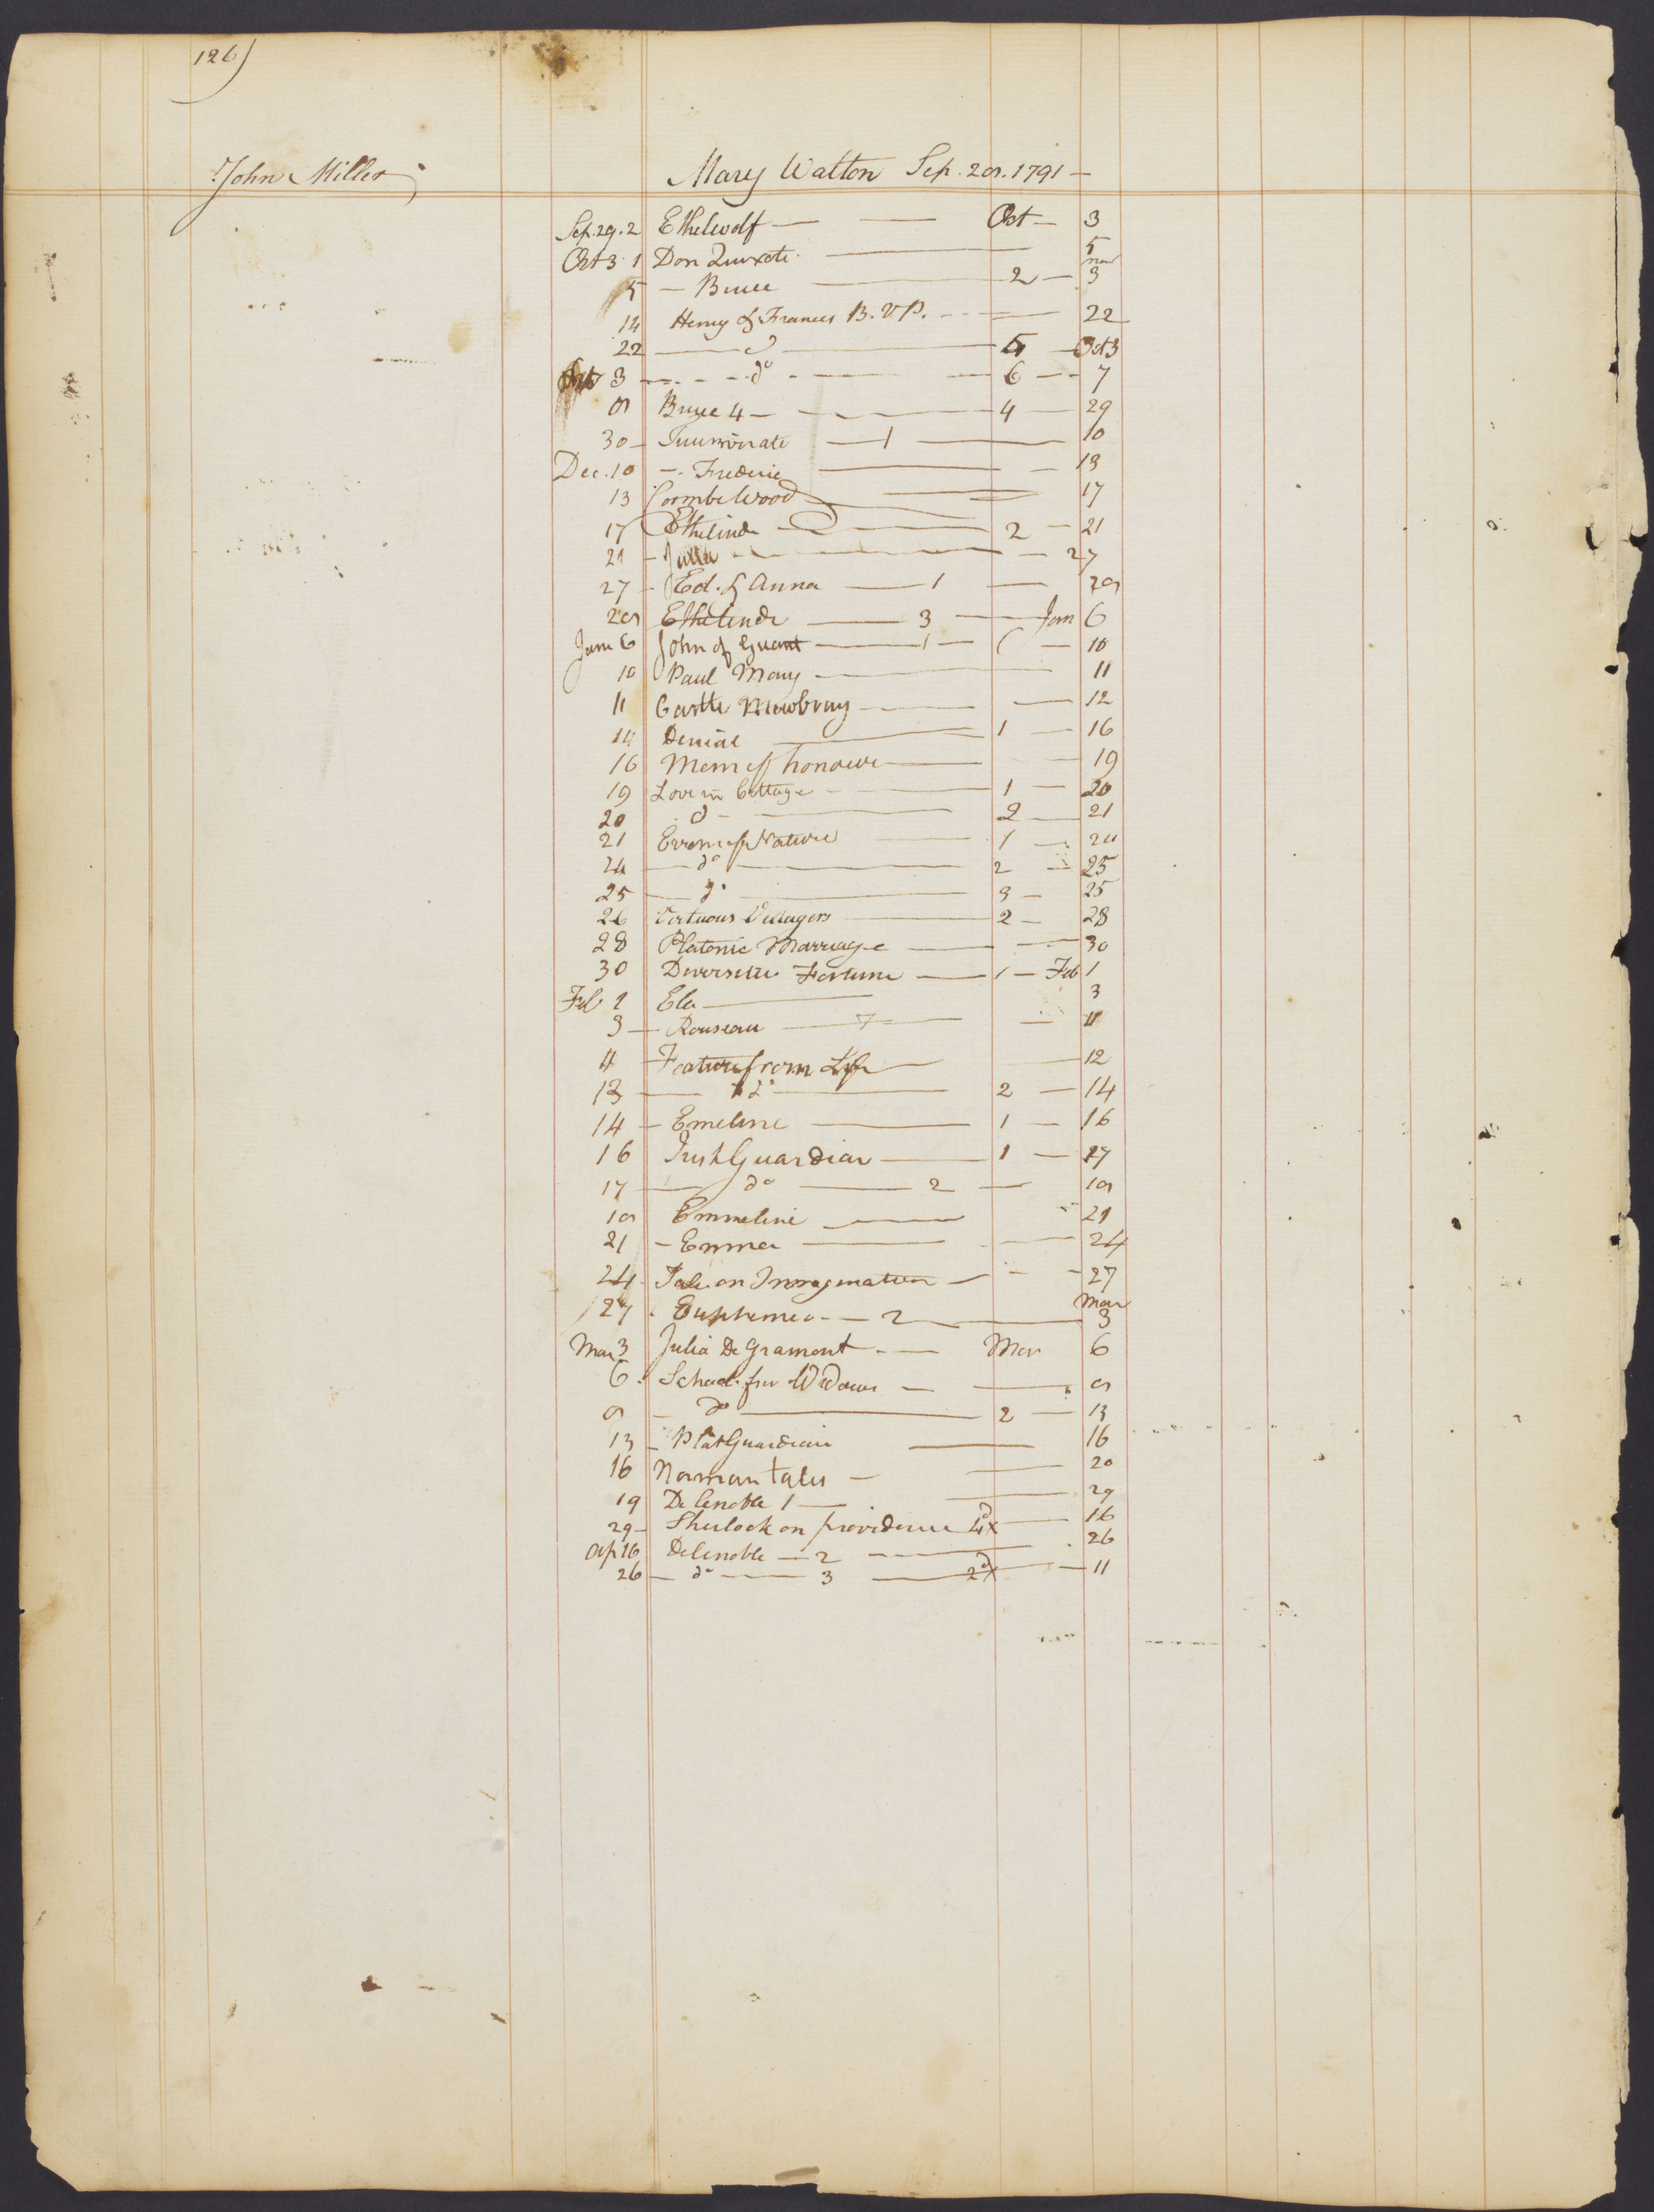 126)
John Miller
Mary Walton Sep. 28. 1791 —
Sep. 29. 2 Ethelwolf — — Oct — 3
Oct 3 1 Don Quixote — 5
Nov
5 — Bruce — 2 — 3
14 Henry & Frances B. V P. — 22
22 — do — 5 — Oct 3
3 — do — 6 — 7
8 Bruce 4 — 4 — 29
30 — Triumvirate — 1 — 10
Dec. 10 — Frederic — — 13
13 Coombe Wood — 17
17 Ethelinde — 2 — 21
21 — Julia — — 27
27 — Ed. & Anna — 1 — 28
28 Ethelinde — 3 — Jan 6
Jan 6 John of Guant — 1 — — 10
10 Paul Mary — 11
11 Castle Mowbray — — 12
14 Denial — 1 — 16
16 Mem of honour — 19
19 Love in Cottage — 1 — 20
20 do — 2 — 21
21 Errors of Nature — 1 — 24
24 — do — 2 — 25
25 — do — 3 — 25
26 Virtuous Villagers — 2 — 28
28 Platonic Marriage — — 30
30 Fortune — 1 — Feb 1
Feb 1 Ela — 3
3 — Rouseau — 7 — — 11
11 Feature from Life — — 12
13 — do — 2 — 14
14 — Emeline — 1 — 16
16 Irish Guardian — 1 — 17
17 — do — 2 — 18
18 Emmeline — 21
21 — Emma — — 24
24 Tale on Immagination — — 27
Mar
27 Euphemea — 2 — 3
Mar 3 Julia De Gramont — Mar 6
6 School for Widows — — 8
8 — do — 2 — 13
13 — Plat Guardian — 16
16 Norman tales — — 20
19 De lenoble 1 — — 29
29 — Sherlock on providence 4d x — 16
Ap 16 Delenoble — 2 — 26
26 — do — 3 — 2d x — 11